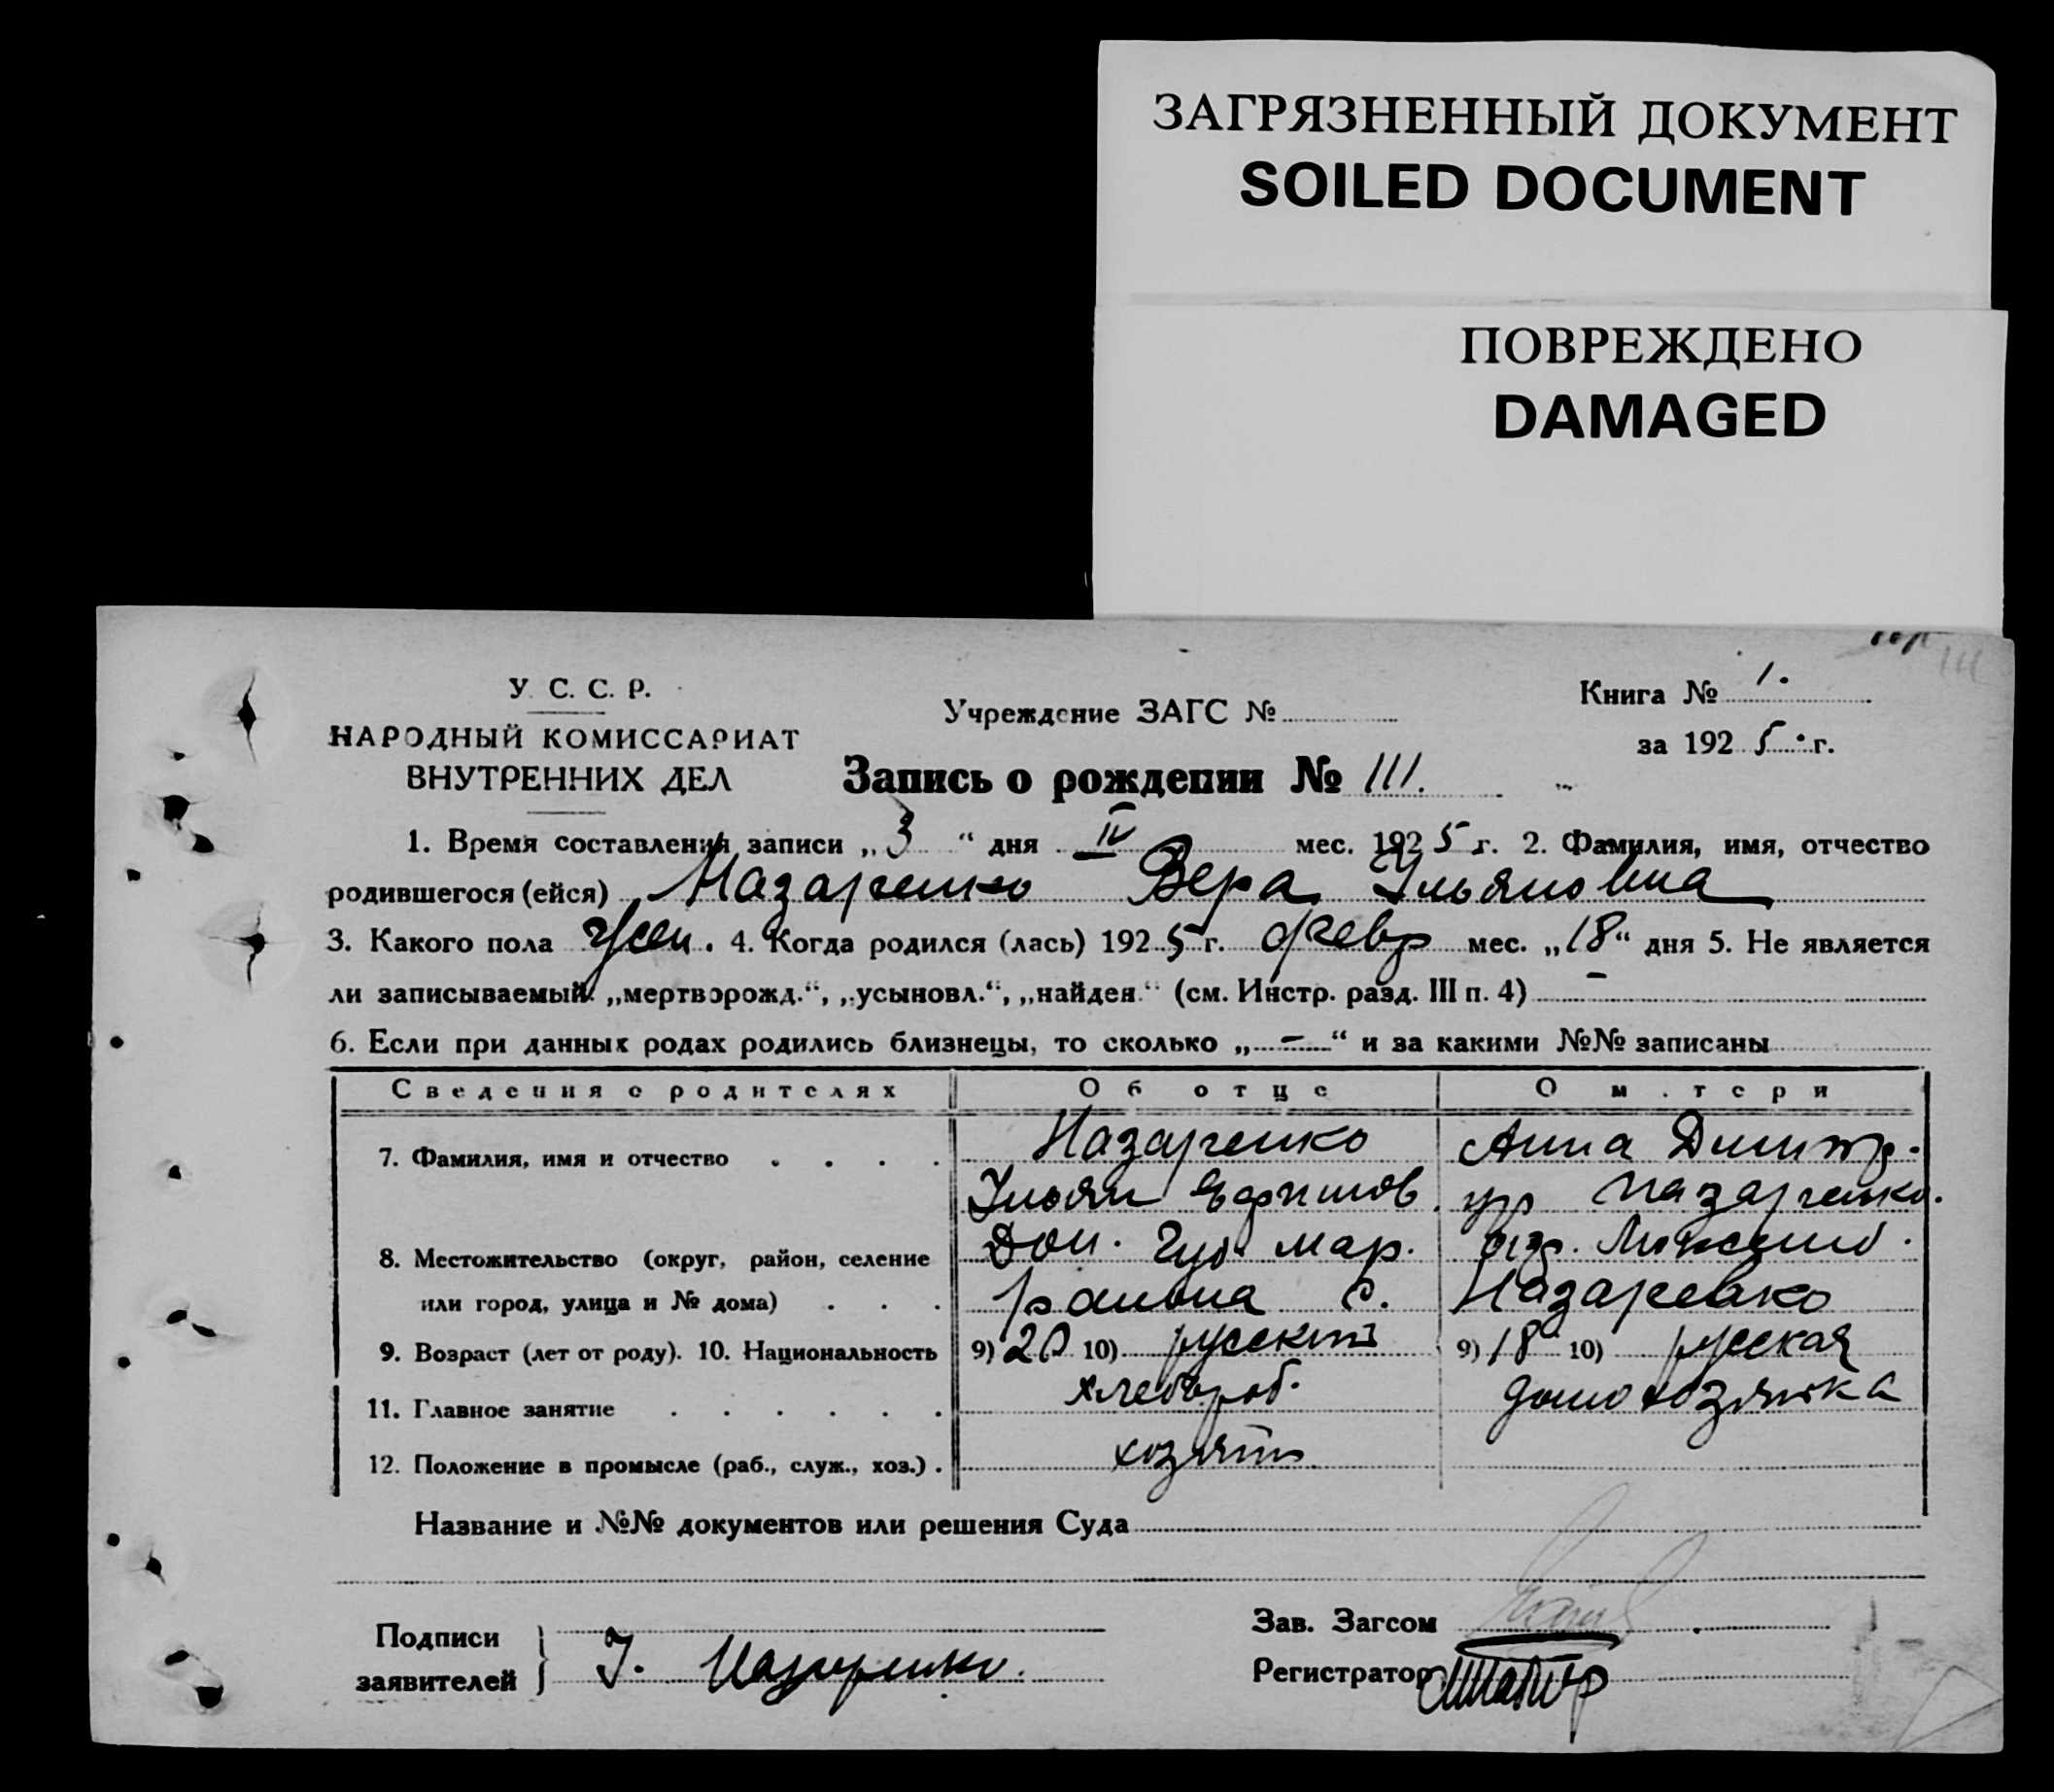 ЗАГРЯЗНЕННЫЙ ДОКУМЕНТ
SOILED DOCUMENT
ПОВРЕЖДЕНО
DAMAGED
У. С. С. Р.
НАРОДНЫЙ КОМИССАРИАТ
ВНУТРЕННИХ ДЕЛ
Учреждение ЗАГС №
Книга № 1.
за 1925 г.
Запись о рождении № 111.
1. Время составления записи „3“ дня IV мес. 1925 г. 2. Фамилия, имя, отчество
родившегося (ейся) Назаренко Вера Ульяновна
3. Какого пола жен. 4. Когда родился (лась) 1925 г. февр мес. „18“ дня 5. Не является
ли записываемый „мертворожд.“, „усыновл.“, „найден“ (см. Инстр. разд. III п. 4) –
6. Если при данных родах родились близнецы, то сколько „–“ и за какими №№ записаны
Сведения о родителях Об отце О м.тери
7. Фамилия, имя и отчество Назаренко Анна Димитр.
Ульян Ефимов. Назаренко.
8. Местожительство (округ, район, селение Дон. мар.
или город, улица и № дома) с.
9. Возраст (лет от роду). 10. Национальность 9) 20 10) русский 9) 18 10) русская
11. Главное занятие хлебороб. домохозяйка
12. Положение в промысле (раб., служ., хоз.) хозяин
Название и №№ документов или решения Суда
Подписи
заявителей
У. Назаренко.
Зав. Загсом
Регистратор